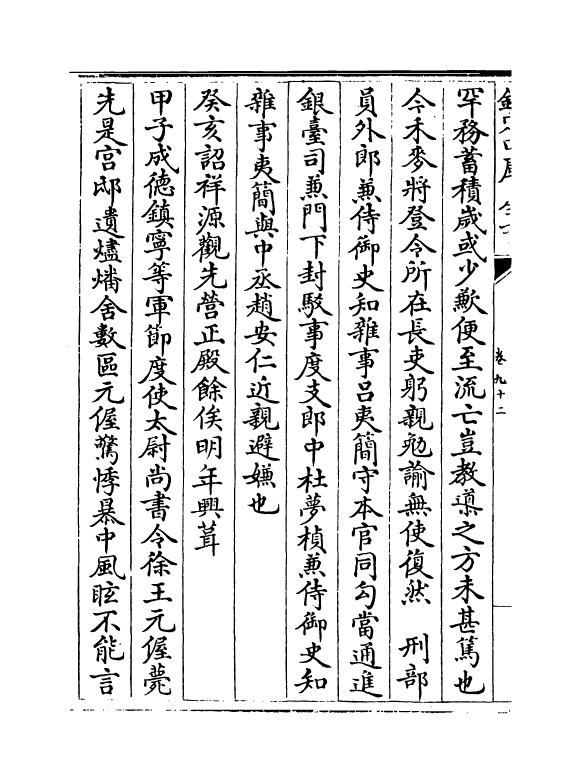 卷九十二
罕務蓄積歲或少歉便至流亡豈教導之方未甚篤也
今禾麥將登令所在長吏躬親勉諭無使復然　刑部
員外郎兼侍御史知雜事吕夷簡守本官同勾當通進
銀臺司兼門下封駁事度支郎中杜夢楨兼侍御史知
雜事夷簡與中丞趙安仁近親避嫌也
癸亥詔祥源觀先營正殿餘俟明年興葺
甲子成德鎮寧等軍節度使太尉尚書令徐王元偓薨
先是宫邸遺燼燔舍數區元偓驚悸暴中風眩不能言